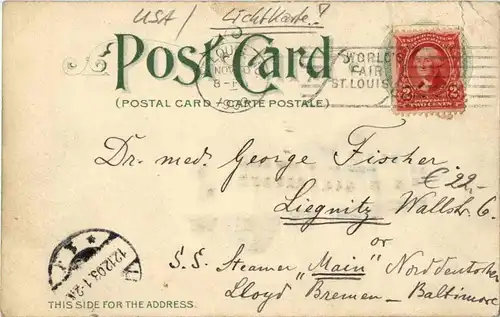 USA / Lichtkarte!
POST CARD
(POSTAL CARD - CARTE POSTALE)
WORLD'S
FAIR
ST. LOUIS
2 2
TWO CENTS
Dr. med. George Fischer
€ 22,-
Liegnitz Wallstr. 6.
or
S. S. Steamer "Main" Norddeutscher
Lloyd Bremen - Baltimore
12.12.03. 1-2
THIS SIDE FOR THE ADDRESS.